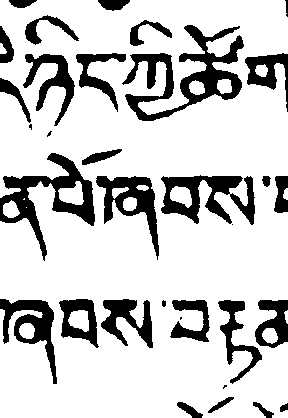 ཉིང་ཀྱི་ཚོག
ན་པོ་ཞབས་
ཞབས་བརྟན